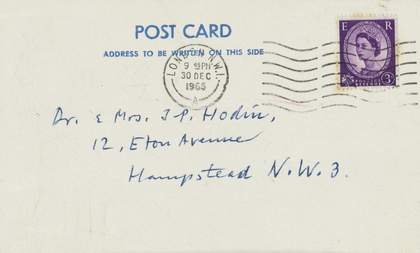 POST CARD
ADDRESS TO BE WRITTEN ON THIS SIDE
LONDON N.W.1.
9 PM
30 DEC
1965
A
E R
3D
Dr. & Mrs. J.P. Hodin,
12, Eton Avenue
Hampstead N.W.3.